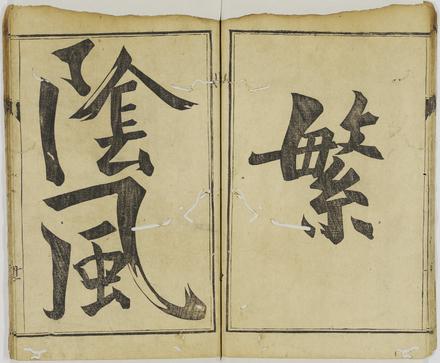 繁
陰風